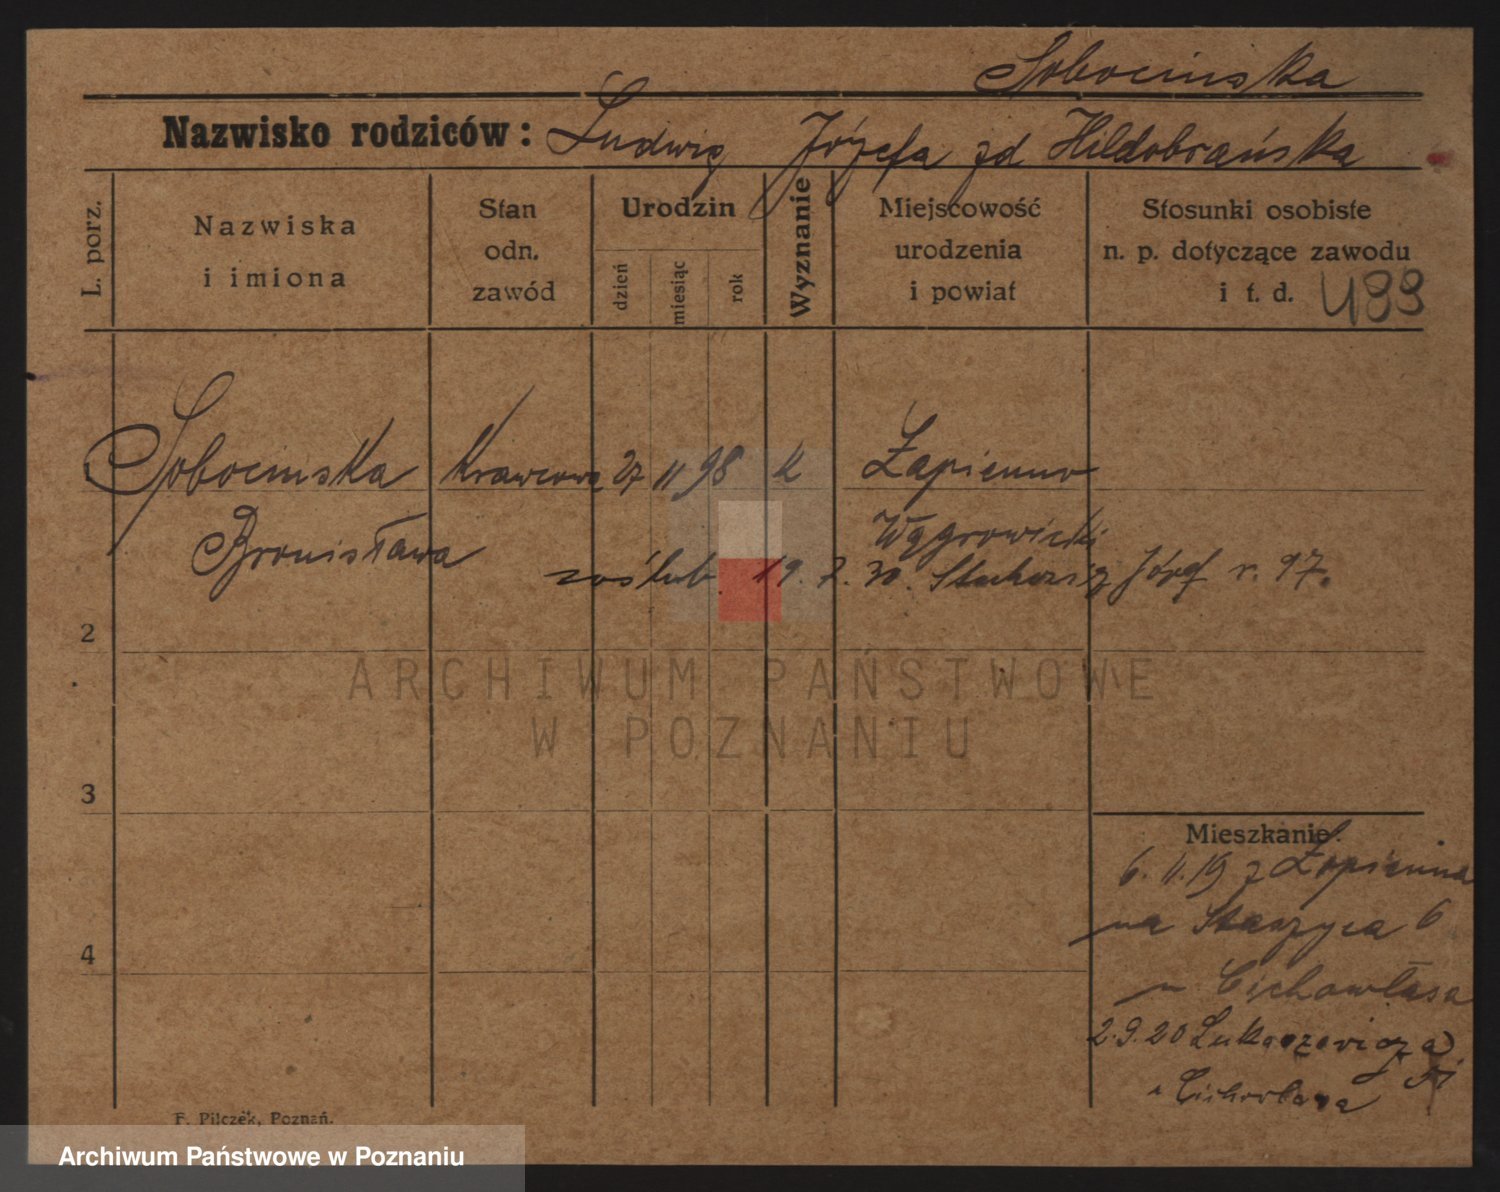 Sobocinska
Nazwisko rodziców: Ludwig Józefa zd Hildobrańska
L. porz.
Nazwiska
i imiona
Stan
odn.
zawód
Urodzin
dzień
miesiąc
rok
Wyznanie
Miejscowość
urodzenia
i powiat
Stosunki osobiste
n. p. dotyczące zawodu
i t. d. 499
Sobocinska Krawcowa 27 11 98 k Łapienno
Bronisława Wągrowiecki
zaślub. 19. 7. 30. Józef r. 97.
2
ARCHIWUM PAŃSTWOWE
W POZNANIU
3
Mieszkanie:
6. 11. 19 z Łopienna
na Staszyca 6
u Cichowlasa
4
2.9.20 Lukaszewicza
u Cichowlasa
F. Pilczek, Poznań.
Archiwum Państwowe w Poznaniu